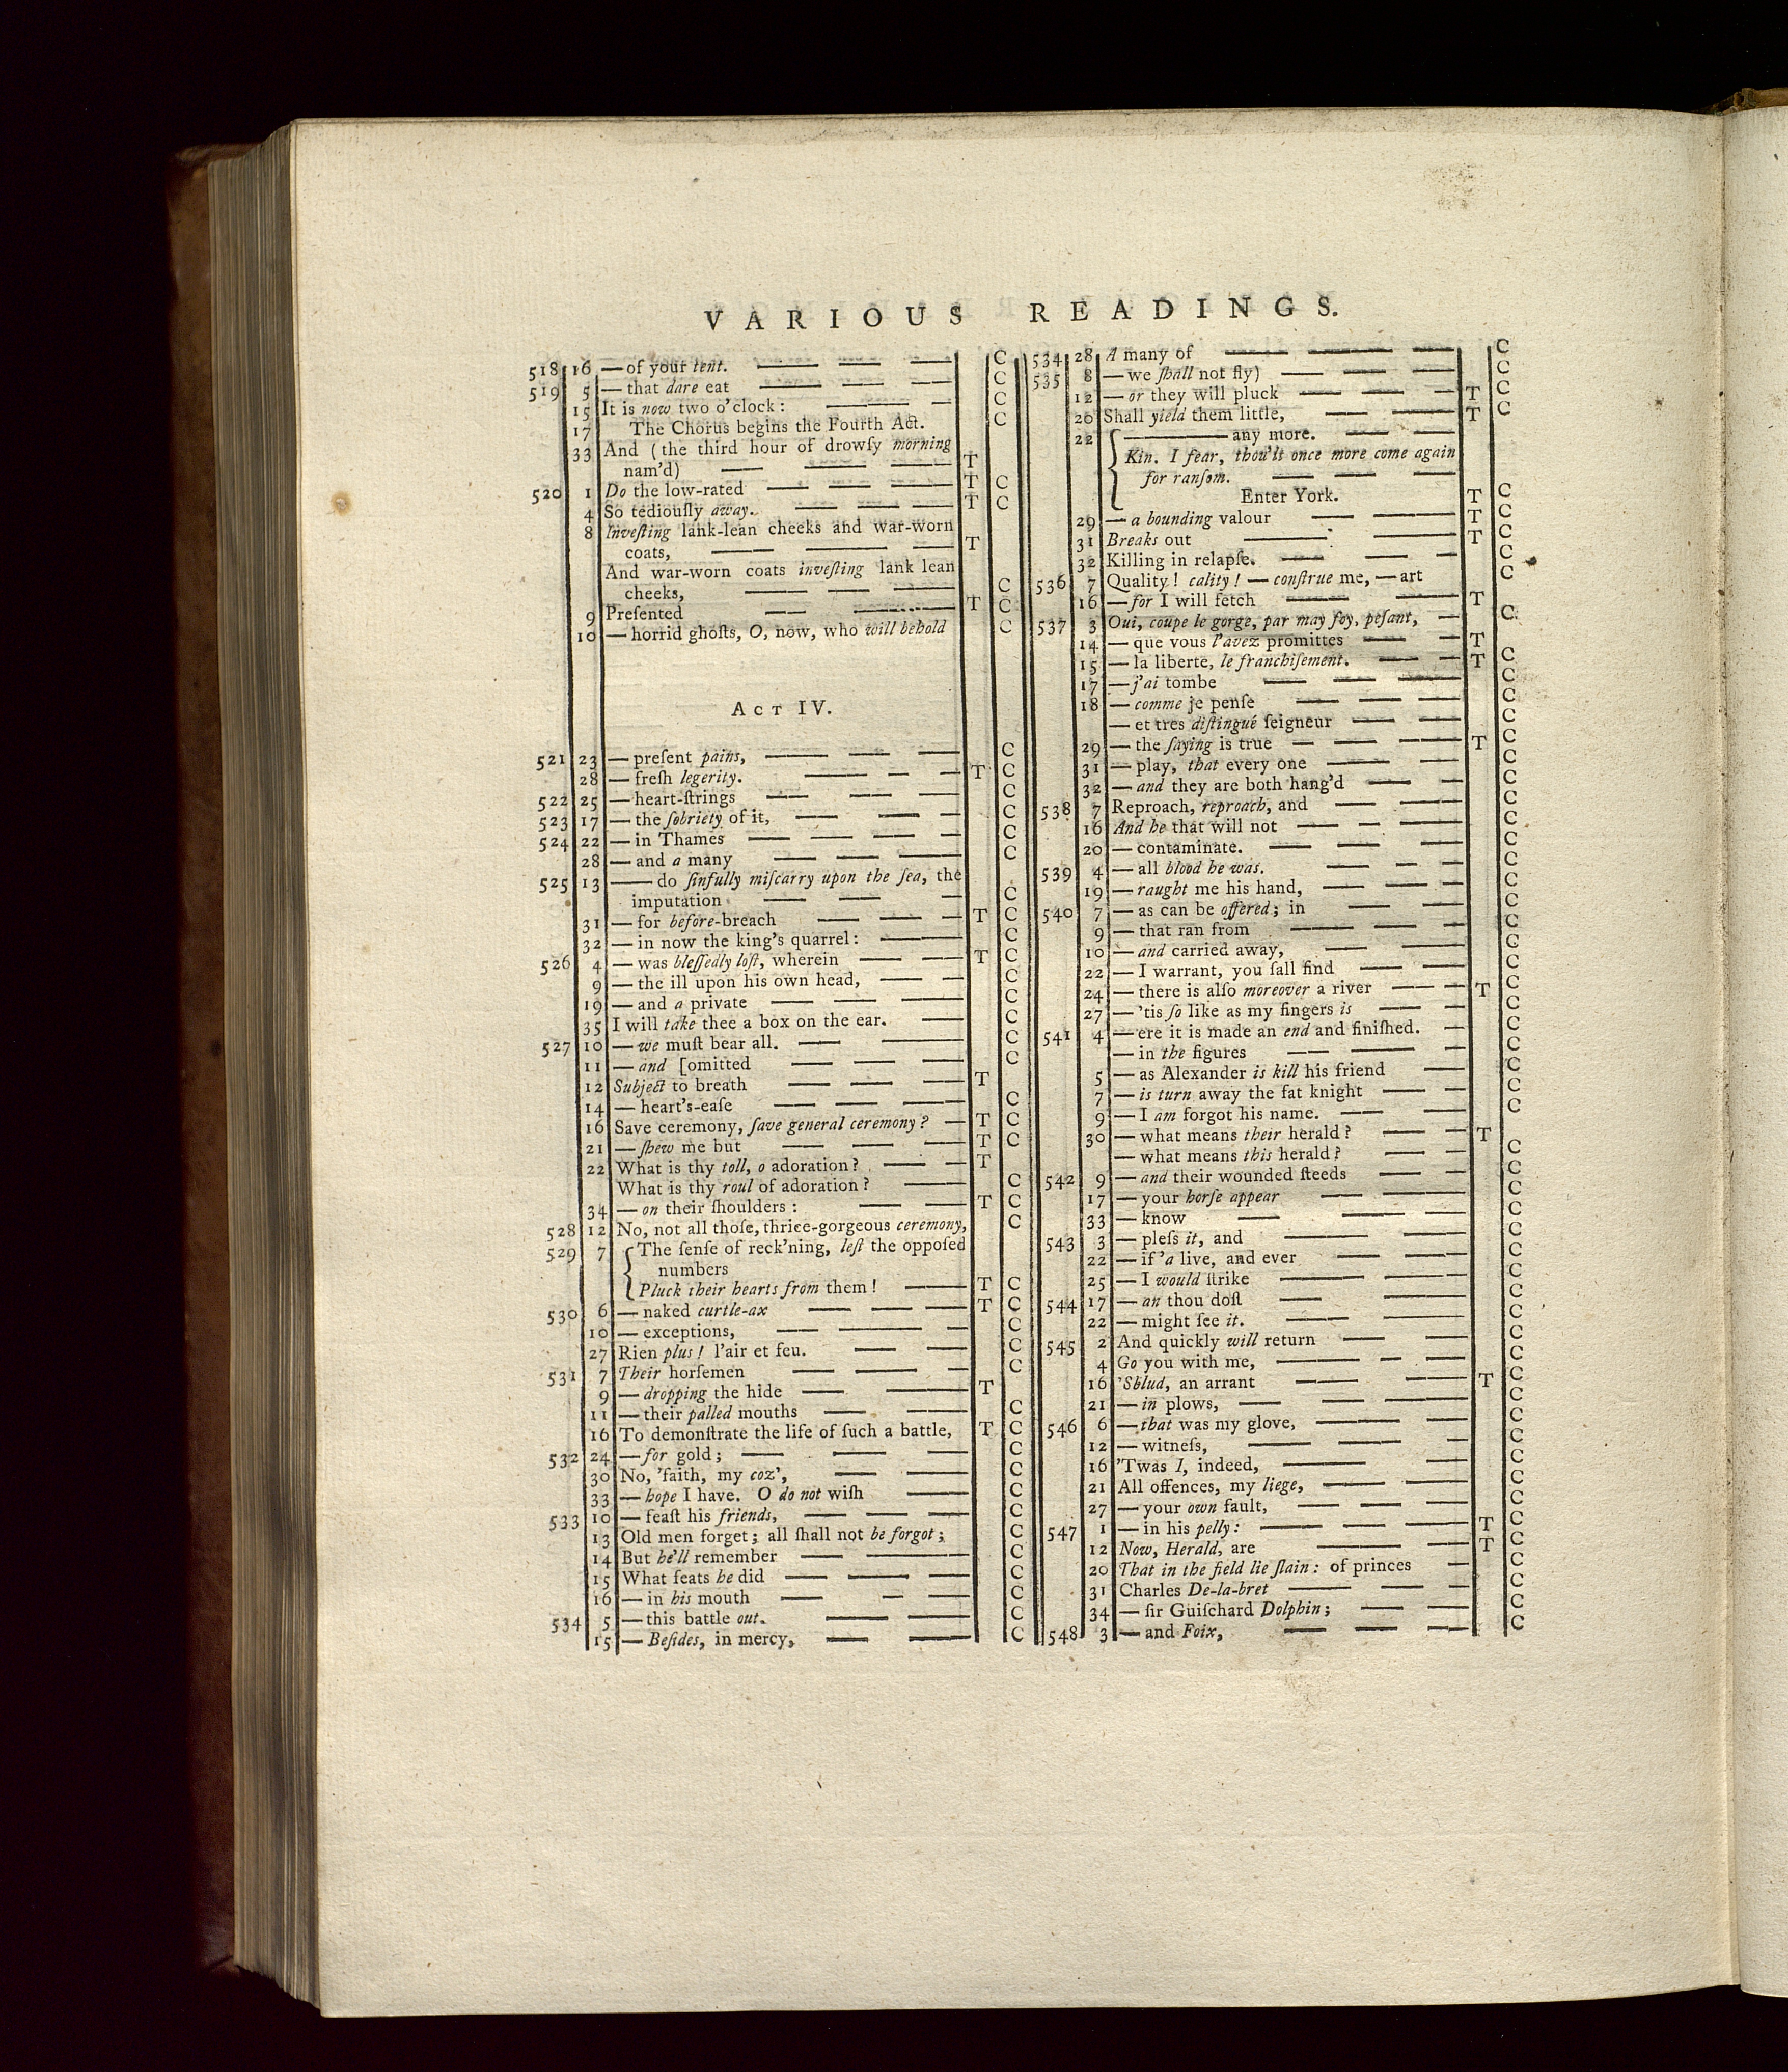 VARIOUS READINGS.
518 16 — of your tent. — — — C
519 5 — that dare eat — — — C
15 It is now two o'clock: — — C
17 The Chorus begins the Fourth Act. C
33 And (the third hour of drowſy morning
nam'd) — — — T
520 1 Do the low-rated — — — T C
4 So tediouſly away. — — — T C
8 Inveſting lank-lean cheeks and war-worn
coats, — — — T
And war-worn coats inveſting lank lean
cheeks, — — — C
9 Preſented — — T C
10 — horrid ghoſts, O, now, who will behold C
ACT IV.
521 23 — preſent pains, — — — C
28 — freſh legerity. — — — T C
522 25 — heart-ſtrings — — — C
523 17 — the ſobriety of it, — — — C
524 22 — in Thames — — — — C
28 — and a many — — — C
525 13 — do ſinfully miſcarry upon the ſea, the
imputation — — — C
31 — for before-breach — — — T C
32 — in now the king's quarrel: — C
526 4 — was bleſſedly loſt, wherein — — T C
9 — the ill upon his own head, — — C
19 — and a private — — — C
35 I will take thee a box on the ear. — C
527 10 — we muſt bear all. — — C
11 — and [omitted — — — C
12 Subject to breath — — — T
14 — heart's-eaſe — — — C
16 Save ceremony, ſave general ceremony? — T C
21 — ſhew me but — — — T C
22 What is thy toll, o adoration? — — T
What is thy roul of adoration? — C
34 — on their ſhoulders: — — T C
528 12 No, not all thoſe, thrice-gorgeous ceremony, C
529 7 { The ſenſe of reck'ning, leſt the oppoſed
numbers
Pluck their hearts from them! — T C
530 6 — naked curtle-ax — — — T C
10 — exceptions, — — — C
27 Rien plus! l'air et feu. — — C
531 7 Their horſemen — — — C
9 — dropping the hide — — T
11 — their palled mouths — — — C
16 To demonſtrate the life of ſuch a battle, T C
532 24 — for gold; — — — C
30 No, 'faith, my coz', — — C
33 — hope I have. O do not wiſh — C
533 10 — feaſt his friends, — — — C
13 Old men forget; all ſhall not be forgot; C
14 But he'll remember — — C
15 What feats he did — — — C
16 — in his mouth — — — C
534 5 — this battle out. — — C
15 — Beſides, in mercy, — — C
534 28 A many of — — — C
535 8 — we ſhall not fly) — — — C
12 — or they will pluck — — — T C
20 Shall yield them little, — — — T C
22 { — any more. — —
Kin. I fear, thou'lt once more come again
for ranſom. — — —
Enter York. T C
29 — a bounding valour — — T C
31 Breaks out — — T C
32 Killing in relapſe. — — — C
536 7 Quality! cality! — conſtrue me, — art C
16 — for I will fetch — — T
537 3 Oui, coupe le gorge, par may foy, peſant, — C
14 — que vous l'avez promittes — — T
15 — la liberte, le franchiſement. — — T C
17 — j'ai tombe — — — C
18 — comme je penſe — — — C
— et tres diſtingué ſeigneur — — C
29 — the ſaying is true — — — T C
31 — play, that every one — — — C
32 — and they are both hang'd — — C
538 7 Reproach, reproach, and — — C
16 And he that will not — — — C
20 — contaminate. — — — C
539 4 — all blood he was. — — — C
19 — raught me his hand, — — — C
540 7 — as can be offered; in — — C
9 — that ran from — — — C
10 — and carried away, — — C
22 — I warrant, you ſall find — — C
24 — there is alſo moreover a river — — T C
27 — 'tis ſo like as my fingers is — — C
541 4 — ere it is made an end and finiſhed. — C
— in the figures — — — C
5 — as Alexander is kill his friend — C
7 — is turn away the fat knight — — C
9 — I am forgot his name. — — C
30 — what means their herald? — — T
— what means this herald? — — C
542 9 — and their wounded ſteeds — — C
17 — your horſe appear — — — C
33 — know — — — C
543 3 — pleſs it, and — — C
22 — if 'a live, and ever — — C
25 — I would ſtrike — — C
544 17 — an thou doſt — — C
22 — might ſee it. — — — C
545 2 And quickly will return — — C
4 Go you with me, — — — C
16 'Sblud, an arrant — — — T C
21 — in plows, — — — C
546 6 — that was my glove, — — C
12 — witneſs, — — — C
16 'Twas I, indeed, — — C
21 All offences, my liege, — — C
27 — your own fault, — — — C
547 1 — in his pelly: — — — T C
12 Now, Herald, are — — T C
20 That in the field lie ſlain: of princes — C
31 Charles De-la-bret — — — C
34 — ſir Guiſchard Dolphin; — — C
548 3 — and Foix, — — — C